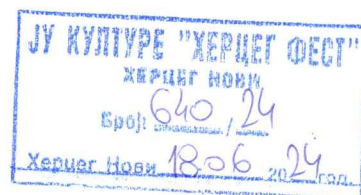 ЈУ КУЛТУРЕ "ХЕРЦЕГ ФЕСТ"
ХЕРЦЕГ НОВИ
Број: 640 / 24
Херцег Нови 18.06 2024 год.